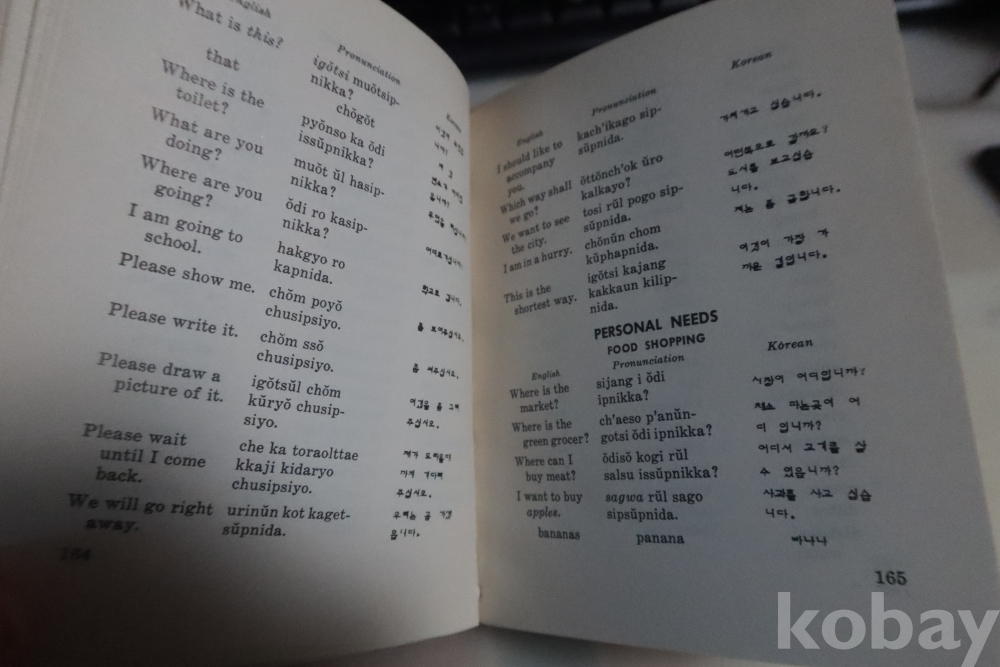 English
Pronunciation
What is this?
igŏtsi muŏtsip-
nikka?
that
chŏgŏt
저 것
Where is the
toilet?
pyŏnso ka ŏdi
issŭpnikka?
What are you
doing?
muŏt ŭl hasip-
nikka?
무엇을
Where are you
going?
ŏdi ro kasip-
nikka?
어데로 가십니까?
I am going to
school.
hakgyo ro
kapnida.
학교로 갑니다.
Please show me.
chŏm poyŏ
chusipsiyo.
좀 보여주십시요.
Please write it.
chŏm ssŏ
chusipsiyo.
좀 써주십시요.
Please draw a
picture of it.
igŏtsŭl chŏm
kŭryŏ chusip-
siyo.
이것을 좀 그려
주십시요.
Please wait
until I come
back.
che ka toraolttae
kkaji kidaryo
chusipsiyo.
제가 도라올때
까지 기다려
주십시요.
We will go right
away.
urinŭn kot kaget-
sŭpnida.
우리는 곧 가겠
읍니다.
164
English
Pronunciation
Korean
I should like to
accompany
you.
kach'ikago sip-
sŭpnida.
가치가고 십습니다.
Which way shall
we go?
ŏttŏnch'ok ŭro
kalkayo?
어떤쪽으로 갈까요?
We want to see
the city.
tosi rŭl pogo sip-
sŭpnida.
도시를 보고십습
니다.
I am in a hurry.
chŏnŭn chom
kŭphapnida.
저는 좀 급합니다.
This is the
shortest way.
igŏtsi kajang
kakkaun kilip-
nida.
이것이 가장 가
까운 길입니다.
PERSONAL NEEDS
FOOD SHOPPING
English
Pronunciation
Korean
Where is the
market?
sijang i ŏdi
ipnikka?
시장이 어디입니까?
Where is the
green grocer?
ch'aeso p'anŭn-
gotsi ŏdi ipnikka?
채소 파는곳이 어
디 입니까?
Where can I
buy meat?
ŏdisŏ kogi rŭl
salsu issŭpnikka?
어디서 고기를 살
수 있읍니까?
I want to buy
apples.
sagwa rŭl sago
sipsŭpnida.
사과를 사고 십습
니다.
bananas
panana
바나나
165
kobay